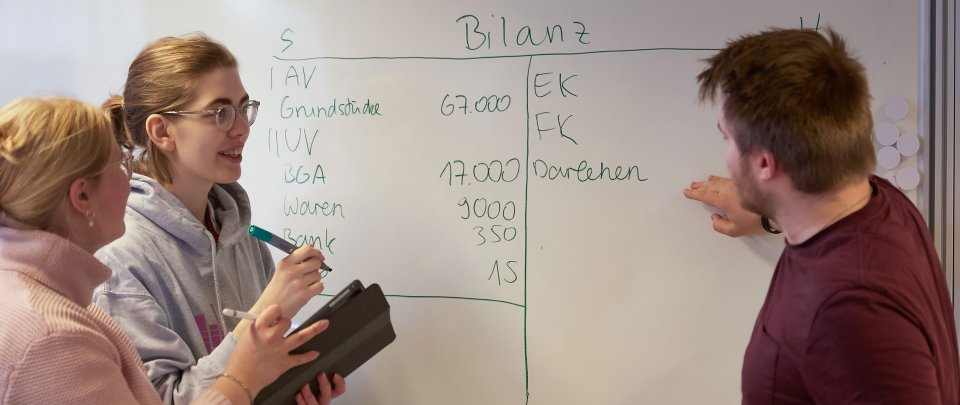 S Bilanz H
I AV EK
Grundstücke 67.000 FK
II UV
BGA 17.000 Darlehen
Waren 9000
Bank 350
15